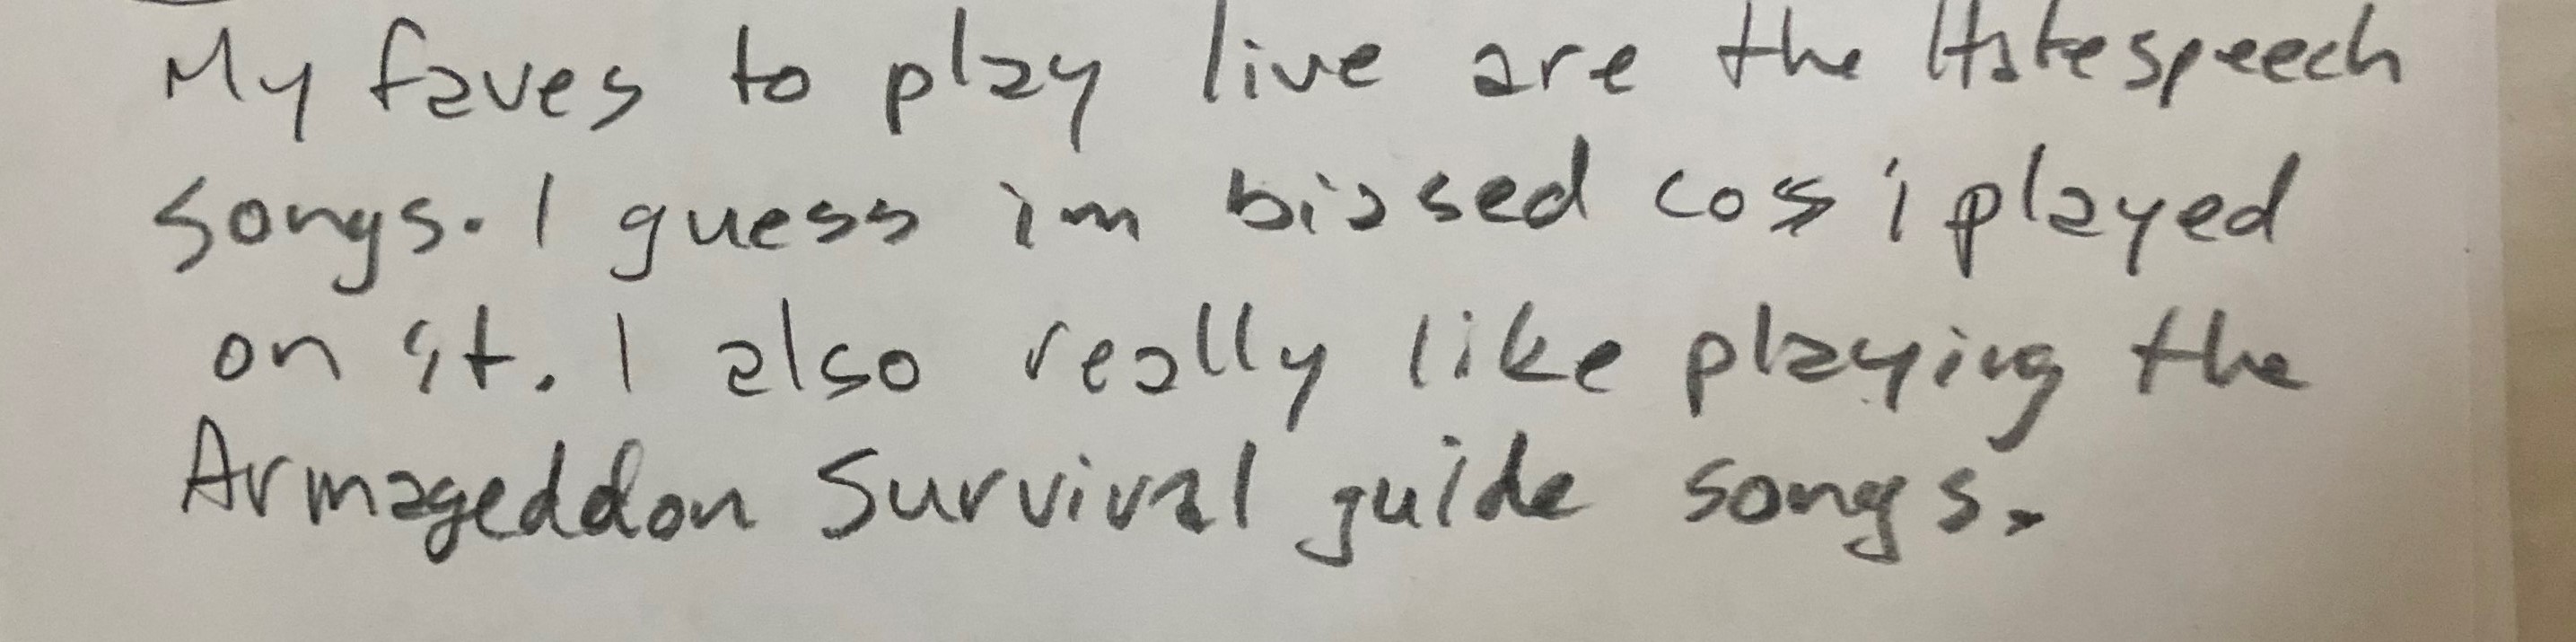 My faves to play live are the Hatespeech
songs. I guess im biased cos i played
on it. I also really like playing the
Armageddon Survival guide songs.